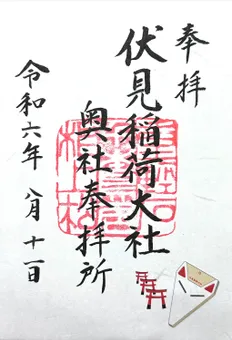 奉拝
伏見稲荷大社
奥社奉拝所
令和六年 八月 十一日